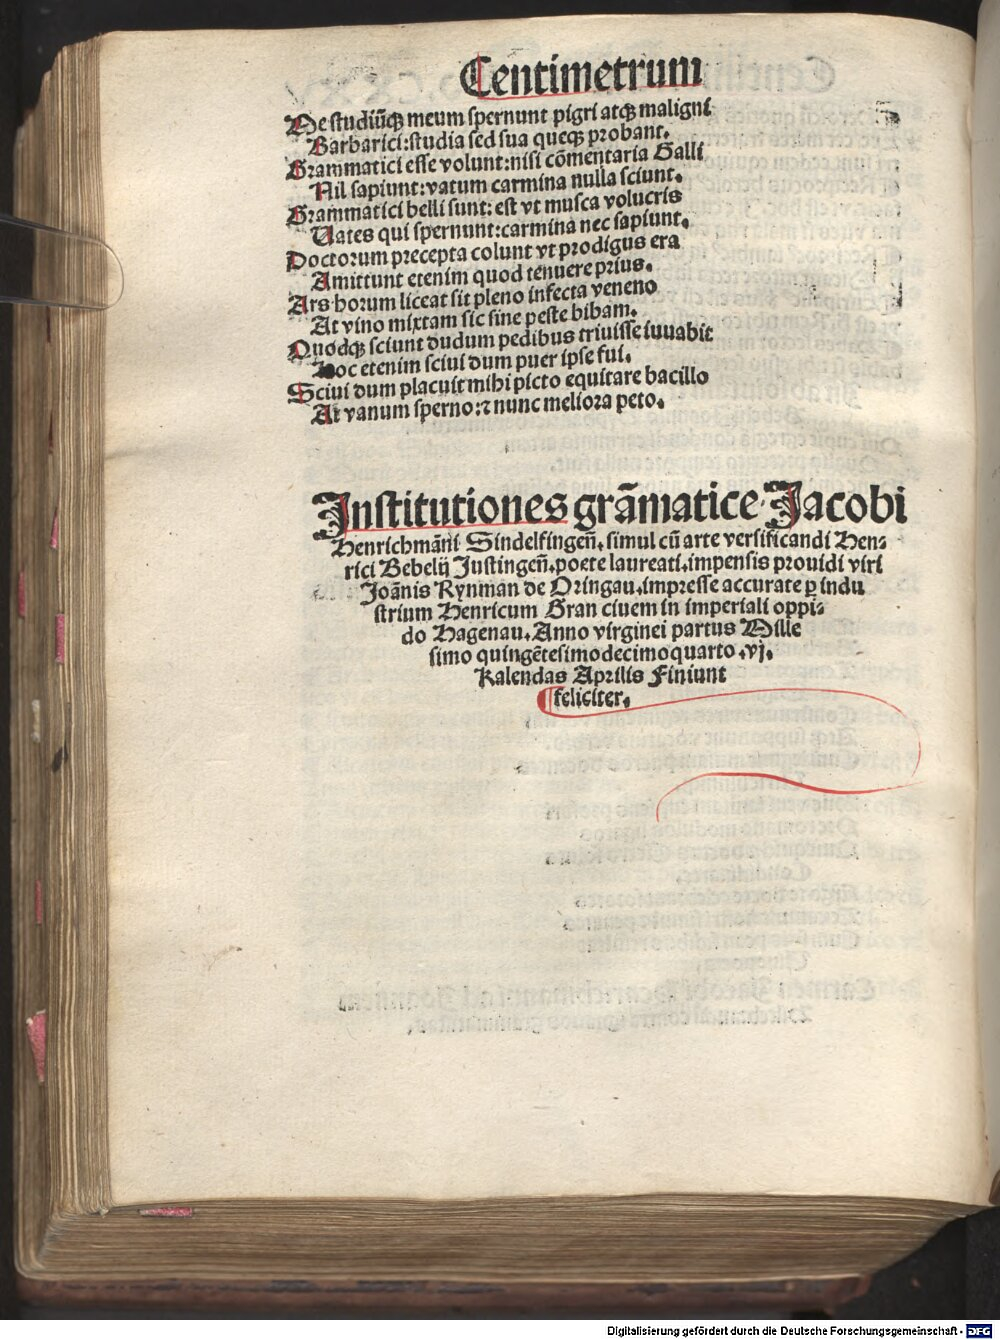 Centimetrum
Me studiũq; meum spernunt pigri atq; maligni
Barbarici: studia sed sua queq; probant.
Grammatici esse volunt: nisi cõmentaria Galli
Nil sapiunt: vatum carmina nulla sciunt.
Grammatici belli sunt: est vt musca volucris
Uates qui spernunt: carmina nec sapiunt.
Doctorum precepta colunt vt prodigus era
Amittunt etenim quod tenuere prius.
Ars horum liceat sit pleno infecta veneno
At vino mixtam sic sine peste bibam.
Quodq; sciunt dudum pedibus triuisse iuuabit
Hoc etenim sciui dum puer ipse fui.
Sciui dum placuit mihi picto equitare bacillo
At vanum sperno: ⁊ nunc meliora peto.
Institutiones grãmatice Jacobi
Henrichmãni Sindelfingeñ. simul cũ arte versificandi Hen⸗
rici Bebelij Justingeñ. poete laureati. impensis prouidi viri
Joãnis Rynman de Oringau. impresse accurate ꝑ indu
strium Henricum Gran ciuem in imperiali oppi⸗
do Hagenau. Anno virginei partus Mille
simo quingẽtesimo decimo quarto .vj.
Kalendas Aprilis Finiunt
feliciter.
Digitalisierung gefördert durch die Deutsche Forschungsgemeinschaft - DFG